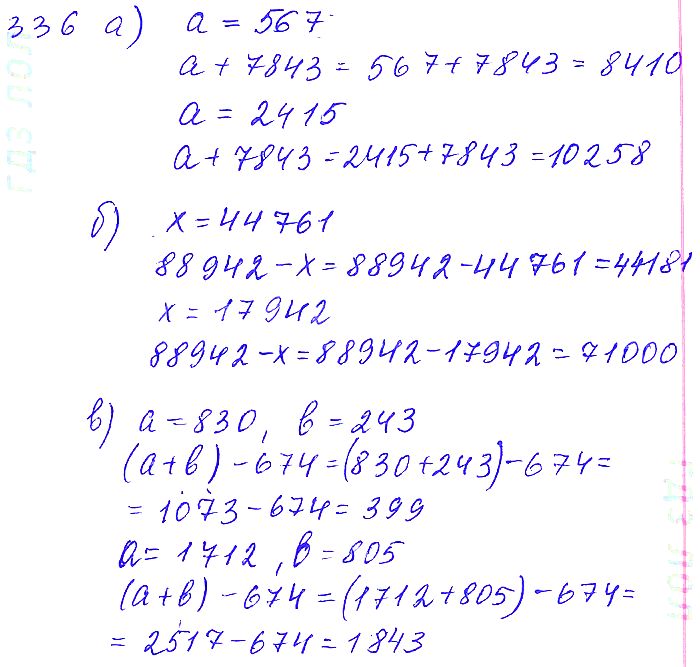 336 а) a = 567
a + 7843 = 567 + 7843 = 8410
a = 2415
a + 7843 = 2415 + 7843 = 10258
б) x = 44761
88942 - x = 88942 - 44761 = 44181
x = 17942
88942 - x = 88942 - 17942 = 71000
в) a = 830, b = 243
(a + b) - 674 = (830 + 243) - 674 =
= 1073 - 674 = 399
a = 1712, b = 805
(a + b) - 674 = (1712 + 805) - 674 =
= 2517 - 674 = 1843